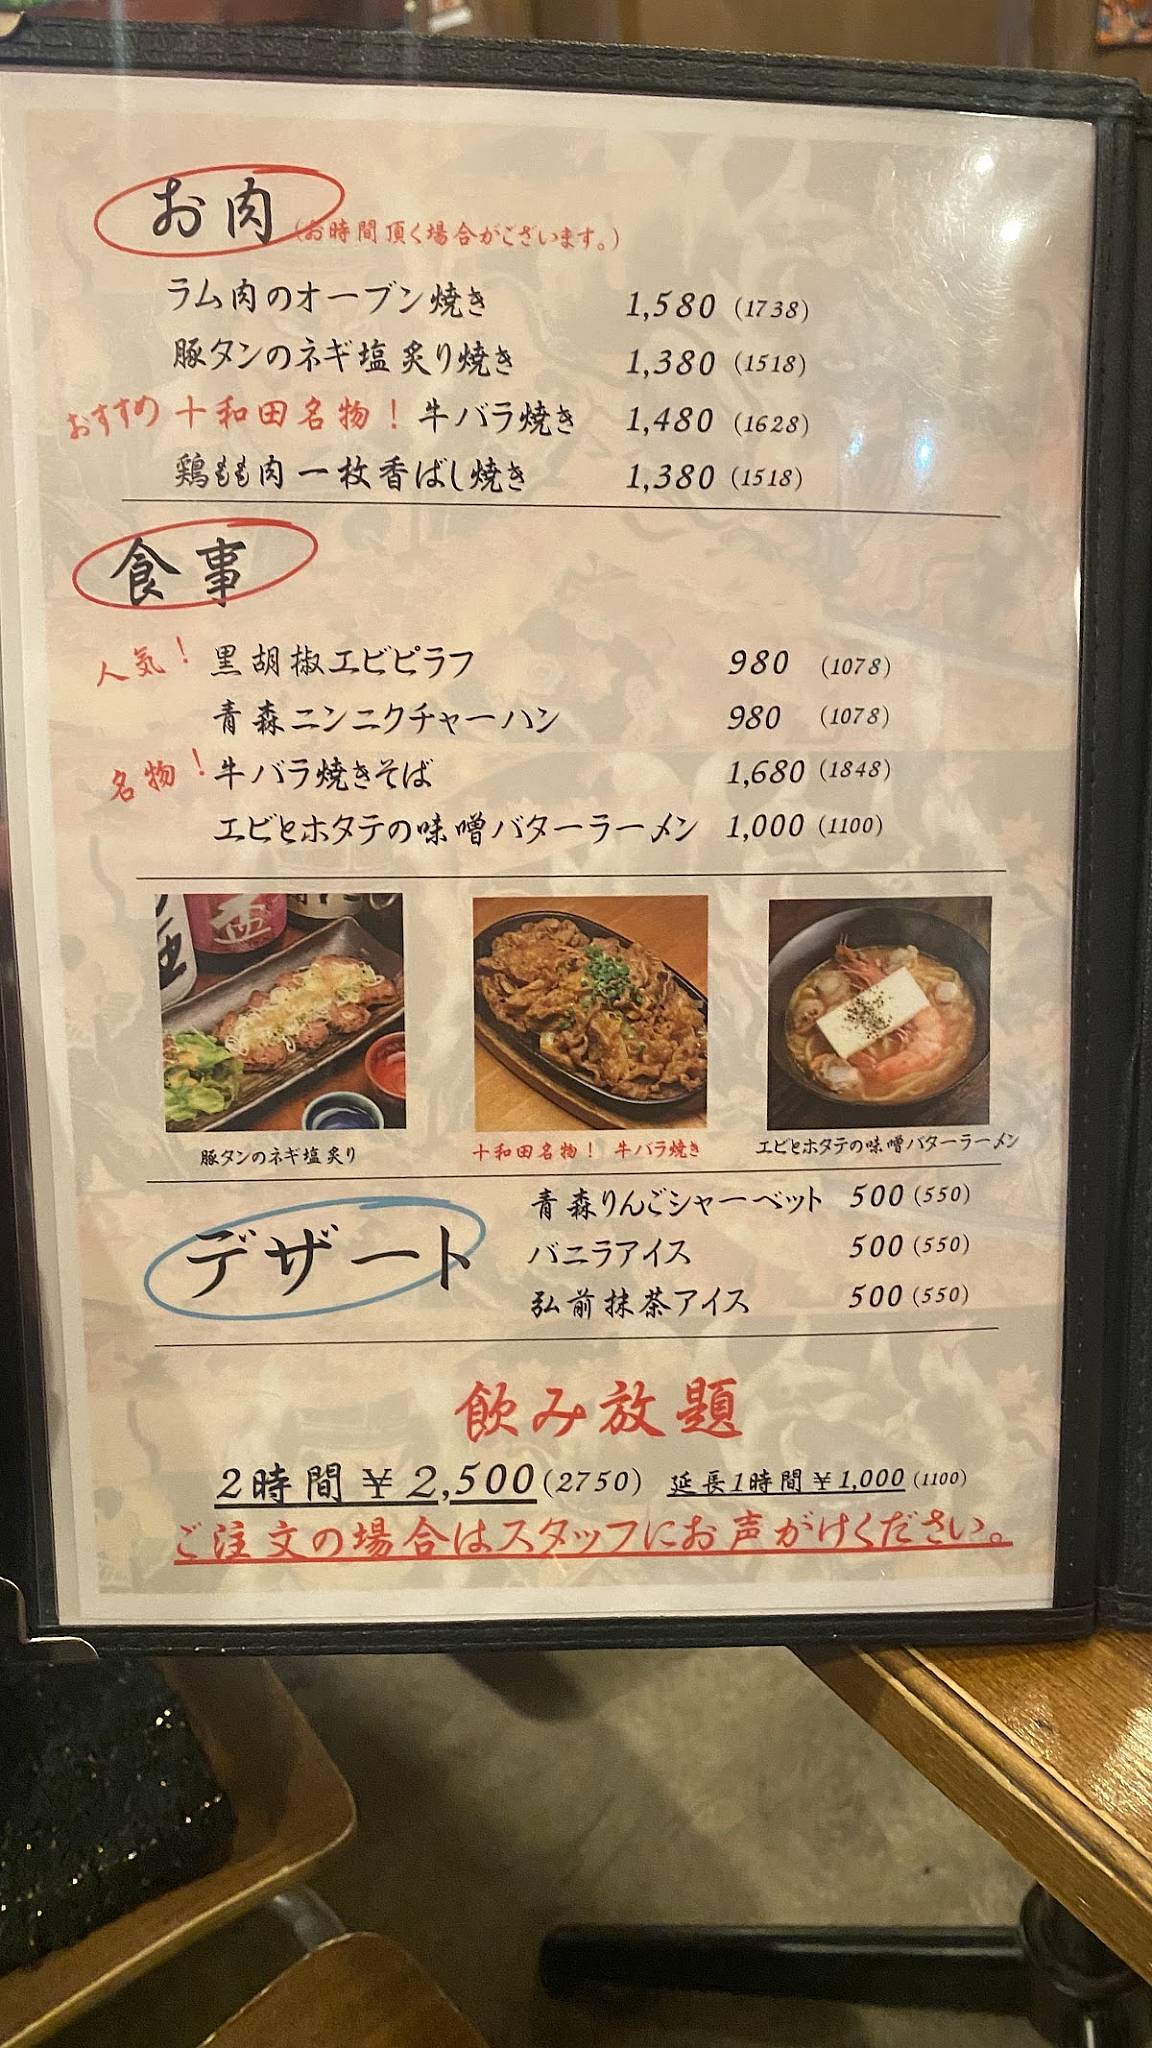 お肉 (お時間頂く場合がございます。)
ラム肉のオーブン焼き 1,580 (1738)
豚タンのネギ塩炙り焼き 1,380 (1518)
おすすめ 十和田名物! 牛バラ焼き 1,480 (1628)
鶏もも肉一枚香ばし焼き 1,380 (1518)
食事
人気! 黒胡椒エビピラフ 980 (1078)
青森ニンニクチャーハン 980 (1078)
名物! 牛バラ焼きそば 1,680 (1848)
エビとホタテの味噌バターラーメン 1,000 (1100)
豚タンのネギ塩炙り
十和田名物! 牛バラ焼き
エビとホタテの味噌バターラーメン
デザート
青森りんごシャーベット 500 (550)
バニラアイス 500 (550)
弘前抹茶アイス 500 (550)
飲み放題
2時間 ¥2,500 (2750) 延長1時間 ¥1,000 (1100)
ご注文の場合はスタッフにお声がけください。